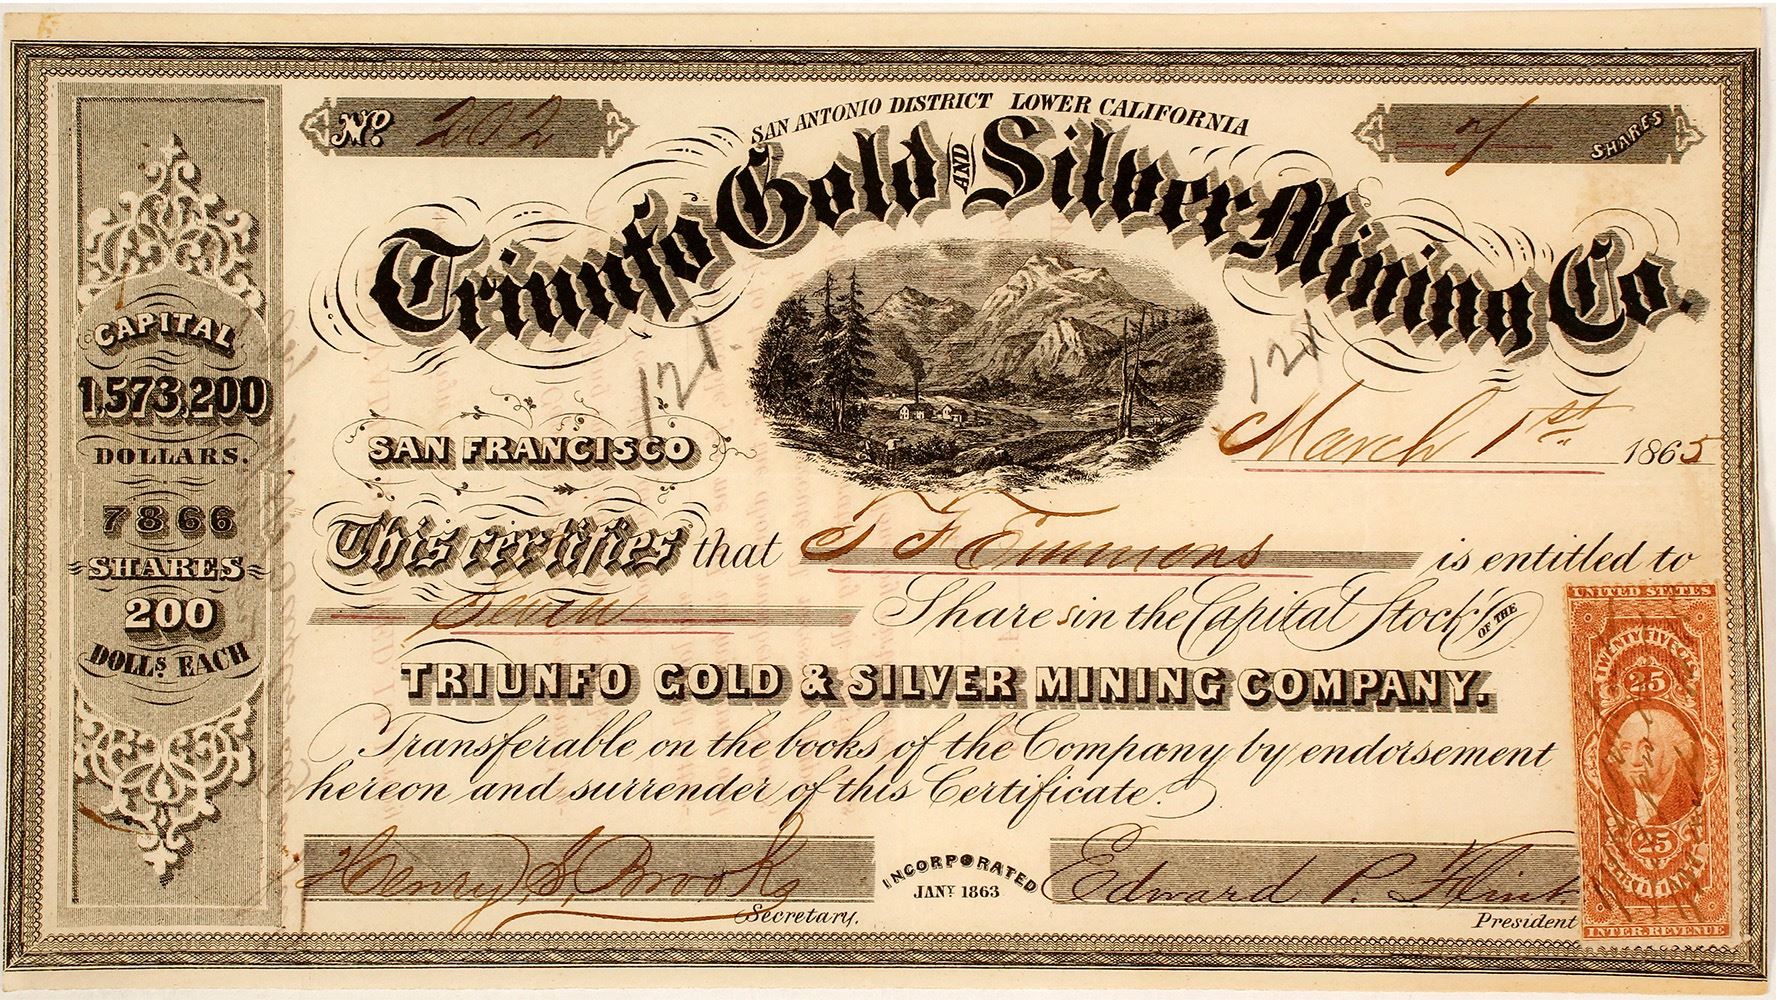 No. 202
SAN ANTONIO DISTRICT LOWER CALIFORNIA
7 SHARES
Triunfo Gold AND Silver Mining Co.
CAPITAL
1,573,200
DOLLARS.
7866
SHARES
200
DOLLS. EACH
121
121
SAN FRANCISCO
March 1st 1865
This certifies that T F Emmons is entitled to
Seven Shares in the Capital Stock OF THE
TRIUNFO GOLD & SILVER MINING COMPANY.
Transferable on the books of the Company by endorsement
hereon and surrender of this Certificate.
Henry S. Brooks
Secretary.
INCORPORATED
JANY 1863
Edward P. Flint
President
UNITED STATES
TWENTY FIVE CTS.
25
25
INTER. REVENUE